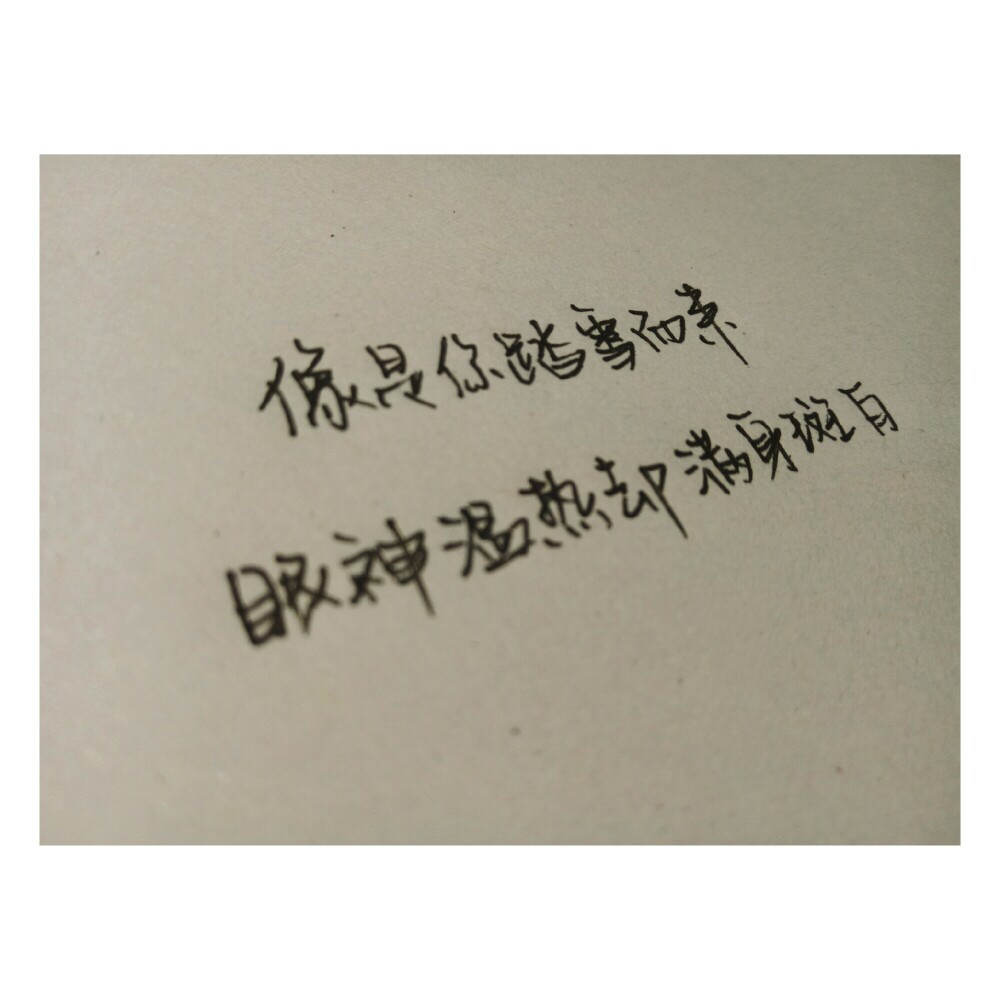 像是你踏雪而来
眼神温热却满身斑白